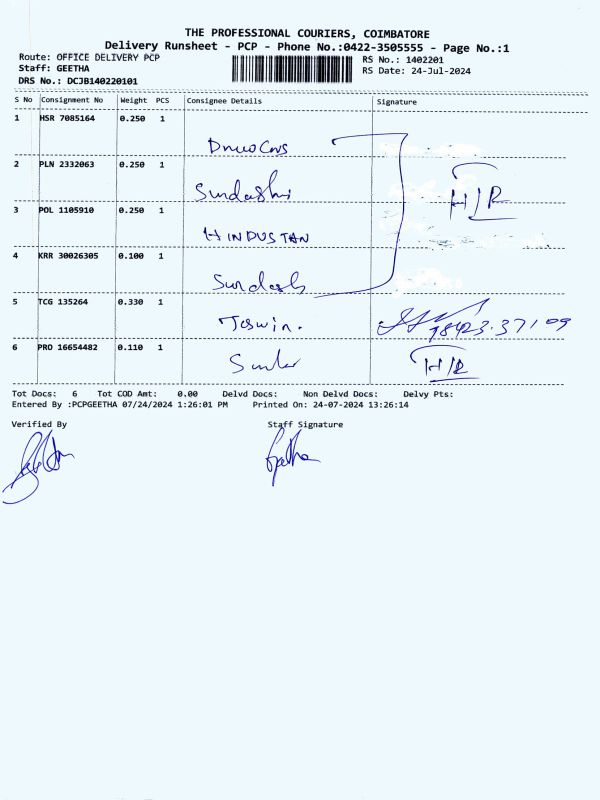 THE PROFESSIONAL COURIERS, COIMBATORE
Delivery Runsheet - PCP - Phone No.:0422-3505555 - Page No.:1
Route: OFFICE DELIVERY PCP
Staff: GEETHA
DRS No.: DCJB140220101
RS No.: 1402201
RS Date: 24-Jul-2024
S No Consignment No Weight PCS Consignee Details Signature
1 HSR 7085164 0.250 1
2 PLN 2332063 0.250 1
Surdashi H/R
3 POL 1105910 0.250 1
HINDUSTAN
4 KRR 30026305 0.100 1
5 TCG 135264 0.330 1
Jeswin.
6 PRO 16654482 0.110 1
H/R
Tot Docs: 6 Tot COD Amt: 0.00 Delvd Docs: Non Delvd Docs: Delvy Pts:
Entered By :PCPGEETHA 07/24/2024 1:26:01 PM Printed On: 24-07-2024 13:26:14
Verified By Staff Signature
Geetha